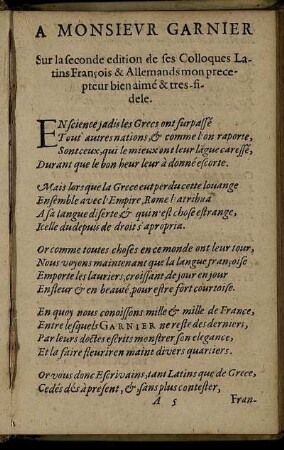 A MONSIEVR GARNIER
Sur la seconde edition de ses Colloques La-
tins François & Allemands mon prece-
pteur bien aimé & tres-fi-
dele.
EN science jadis les Grecs ont surpassé
Tout autres nations, & comme l'on raporte,
Sont ceux, qui le mieux ont leur lãgue caressé,
Durant que le bon heur leur à donné escorte.
Mais lors que la Grece eut perdu cette loüange
Ensemble avec l'Empire, Rome l'atribua
A sa langue diserte, & qui n'est chose estrange,
Icelle du depuis de droit s'apropria.
Or comme toutes choses en ce monde ont leur tour,
Nous voyons maintenant que la langue françoise
Emporte les lauriers, croissant de jour en jour
En fleur & en beauté pour estre fort courtoise.
En quoy nous conoissons mille & mille de France,
Entre lesquels GARNIER ne reste des derniers,
Par leurs doctes escrits monstrer son elegance,
Et la faire fleurir en maint divers quartiers.
Or vous donc Escrivains, tant Latins que de Grece,
Cedés dés à present, & sans plus contester,
A 5 Fran-